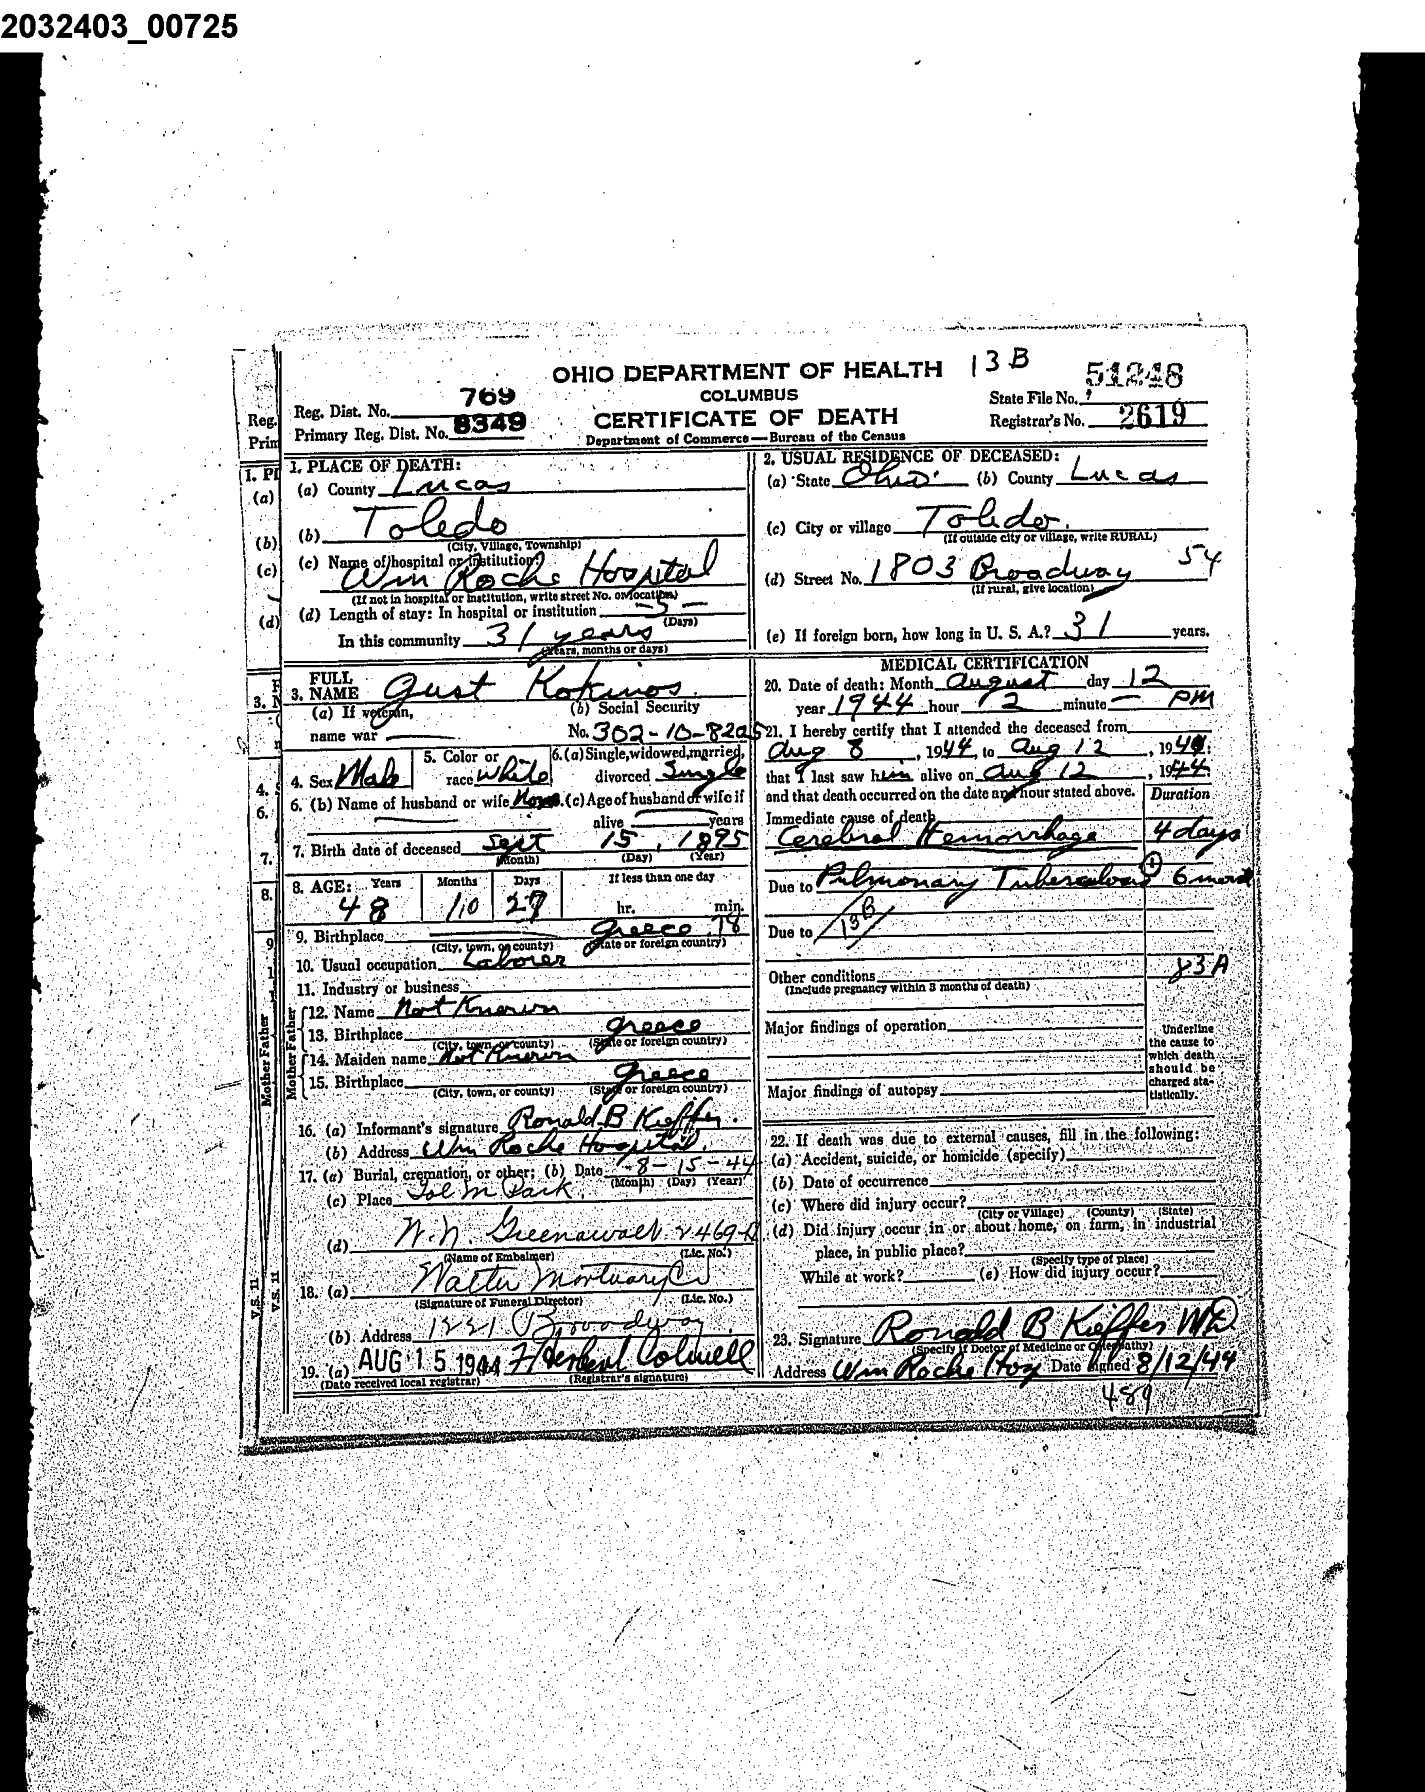 2032403_00725
OHIO DEPARTMENT OF HEALTH 13B
COLUMBUS
CERTIFICATE OF DEATH
Department of Commerce—Bureau of the Census
Reg. Dist. No. 769
Primary Reg. Dist. No. 8349
State File No. 51248
Registrar's No. 2619
1. PLACE OF DEATH:
(a) County Lucas
(b) Toledo
(City, Village, Township)
(c) Name of hospital or institution:
Wm Roche Hospital
(If not in hospital or institution, write street No. or location)
(d) Length of stay: In hospital or institution -5-
(Days)
In this community 31 years
(Years, months or days)
2. USUAL RESIDENCE OF DECEASED:
(a) State Ohio (b) County Lucas
(c) City or village Toledo.
(If outside city or village, write RURAL)
(d) Street No. 1803 Broadway 54
(If rural, give location)
(e) If foreign born, how long in U. S. A.? 31 years.
3. FULL NAME Gust Kokinos
(a) If veteran, name war —
(b) Social Security
No. 302-10-8205
4. Sex Male
5. Color or race White
6. (a) Single, widowed, married, divorced Single
6. (b) Name of husband or wife None. (c) Age of husband or wife if
alive years
7. Birth date of deceased Sept 15, 1895
(Month) (Day) (Year)
8. AGE: Years Months Days If less than one day
48 10 27 hr. min.
9. Birthplace Greece 78
(City, town, or county) (State or foreign country)
10. Usual occupation Laborer
11. Industry or business
Father
12. Name Not Known
13. Birthplace Greece
(City, town, or county) (State or foreign country)
Mother
14. Maiden name Not Known
15. Birthplace Greece
(City, town, or county) (State or foreign country)
16. (a) Informant's signature Ronald B Kieffer.
(b) Address Wm Roche Hospital.
17. (a) Burial, cremation, or other; (b) Date 8-15-44
(Month) (Day) (Year)
(c) Place Tol M Park.
(d) W.N. Greenawalt 2469-A
(Name of Embalmer) (Lic. No.)
18. (a) Walter Mortuary Co
(Signature of Funeral Director) (Lic. No.)
(b) Address 1221 Broadway
19. (a) AUG 15 1944 F Herbert Colwell
(Date received local registrar) (Registrar's signature)
MEDICAL CERTIFICATION
20. Date of death: Month August day 12
year 1944 hour 2 minute — PM
21. I hereby certify that I attended the deceased from
Aug 8, 1944, to Aug 12, 1944:
that I last saw him alive on Aug 12, 1944.
and that death occurred on the date and hour stated above. Duration
Immediate cause of death
Cerebral Hemorrhage 4 days
Due to Pulmonary Tuberculosis 6 mons
Due to 13B
83A
Other conditions
(Include pregnancy within 3 months of death)
Major findings of operation
Major findings of autopsy
Underline
the cause to
which death
should be
charged sta-
tistically.
22. If death was due to external causes, fill in the following:
(a) Accident, suicide, or homicide (specify)
(b) Date of occurrence
(c) Where did injury occur?
(City or Village) (County) (State)
(d) Did injury occur in or about home, on farm, in industrial
place, in public place?
(Specify type of place)
While at work? (e) How did injury occur?
23. Signature Ronald B Kieffer MD
(Specify if Doctor of Medicine or Osteopathy)
Address Wm Roche Hosp Date signed 8/12/44
489
V.S. 11